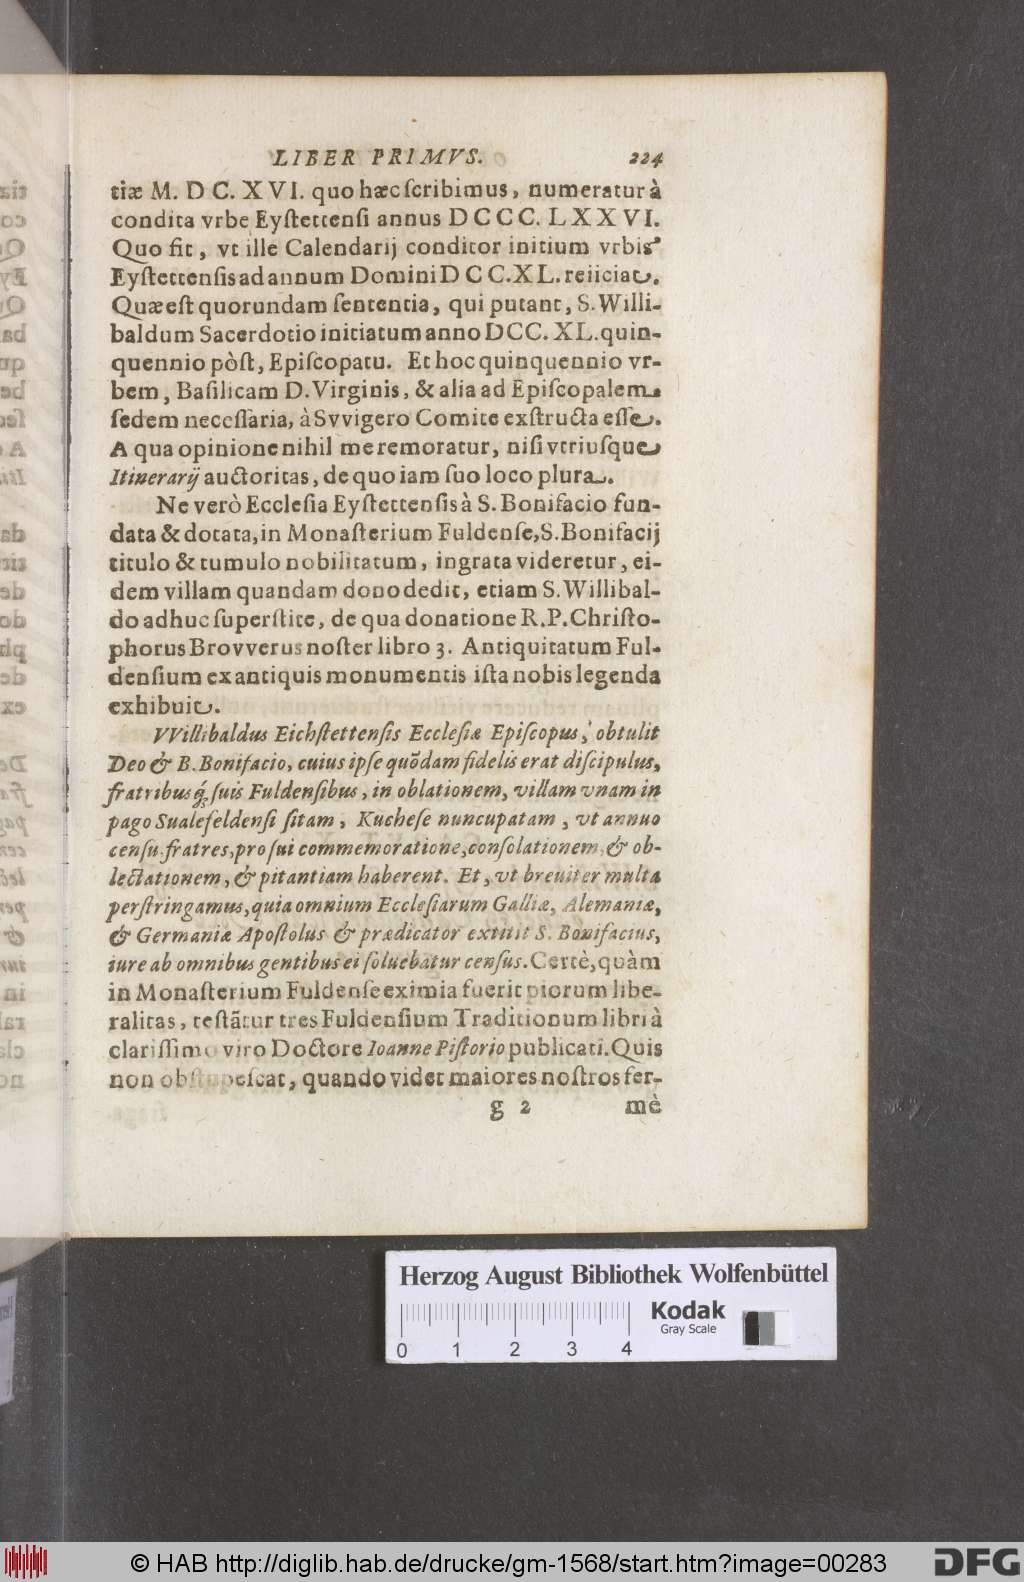 LIBER PRIMVS. 224
tiæ M. D C. X V I. quo hæc ſcribimus, numeratur à
condita vrbe Eyſtettenſi annus D C C C. L X X V I.
Quo fit, vt ille Calendarij conditor initium vrbis
Eyſtettenſis ad annum Domini D C C. X L. reiiciat.
Quæ eſt quorundam ſententia, qui putant, S. Willi-
baldum Sacerdotio initiatum anno DCC. XL. quin-
quennio pòſt, Epiſcopatu. Et hoc quinquennio vr-
bem, Baſilicam D. Virginis, & alia ad Epiſcopalem
ſedem neceſſaria, à Svvigero Comite exſtructa eſſe.
A qua opinione nihil me remoratur, niſi vtriuſque
Itinerarij auctoritas, de quo iam ſuo loco plura.
Ne verò Eccleſia Eyſtettenſis à S. Bonifacio fun-
data & dotata, in Monaſterium Fuldenſe, S. Bonifacij
titulo & tumulo nobilitatum, ingrata videretur, ei-
dem villam quandam dono dedit, etiam S. Willibal-
do adhuc ſuperſtite, de qua donatione R. P. Chriſto-
phorus Brovverus noſter libro 3. Antiquitatum Ful-
denſium ex antiquis monumentis iſta nobis legenda
exhibuit.
VVillibaldus Eichſtettenſis Eccleſiæ Epiſcopus, obtulit
Deo & B. Bonifacio, cuius ipſe quõdam fidelis erat diſcipulus,
fratribusq́; ſuis Fuldenſibus, in oblationem, villam vnam in
pago Sualefeldenſi ſitam, Kucheſe nuncupatam, vt annuo
cenſu fratres, pro ſui commemoratione, conſolationem, & ob-
lectationem, & pitantiam haberent. Et, vt breuiter multa
perſtringamus, quia omnium Eccleſiarum Galliæ, Alemaniæ,
& Germaniæ Apoſtolus & prædicator extitit S. Bonifacius,
iure ab omnibus gentibus ei ſoluebatur cenſus. Certè, quàm
in Monaſterium Fuldenſe eximia fuerit piorum libe-
ralitas, teſtãtur tres Fuldenſium Traditionum libri à
clariſſimo viro Doctore Ioanne Piſtorio publicati. Quis
non obſtupeſcat, quando videt maiores noſtros fer-
g 2 mè
Herzog August Bibliothek Wolfenbüttel
Kodak
Gray Scale
0 1 2 3 4
© HAB http://diglib.hab.de/drucke/gm-1568/start.htm?image=00283
DFG